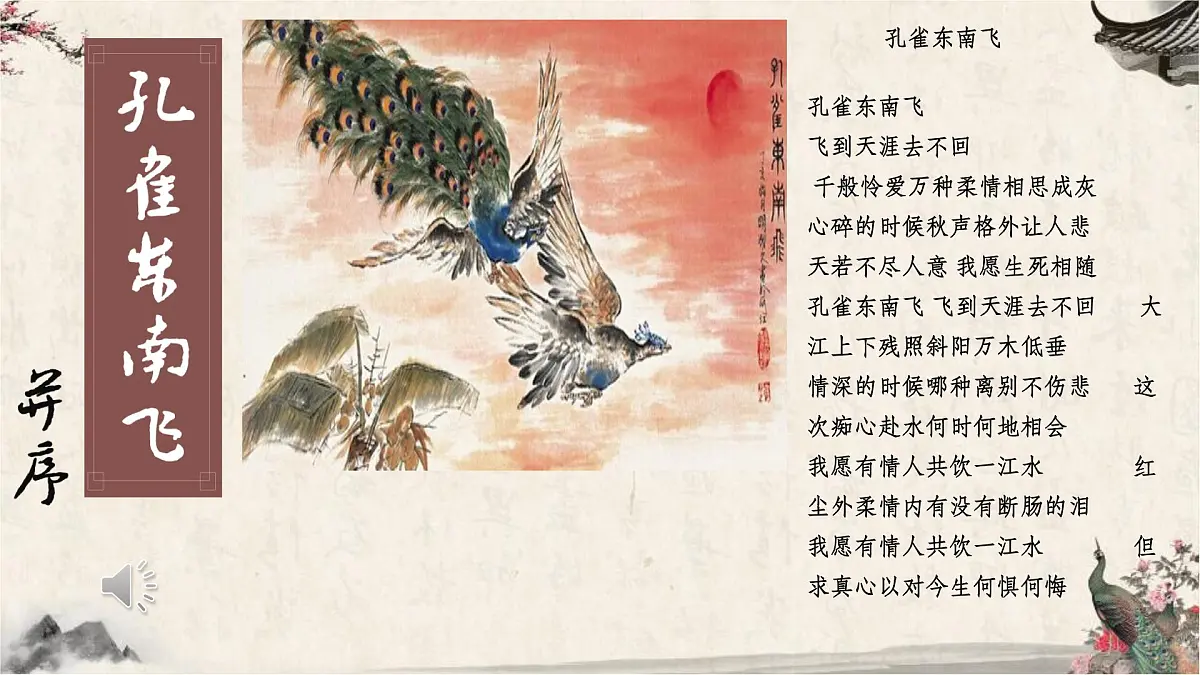 孔雀东南飞
并序
孔雀東南飛
孔雀东南飞
孔雀东南飞
飞到天涯去不回
千般怜爱万种柔情相思成灰
心碎的时候秋声格外让人悲
天若不尽人意 我愿生死相随
孔雀东南飞 飞到天涯去不回 大
江上下残照斜阳万木低垂
情深的时候哪种离别不伤悲 这
次痴心赴水何时何地相会
我愿有情人共饮一江水 红
尘外柔情内有没有断肠的泪
我愿有情人共饮一江水 但
求真心以对今生何惧何悔